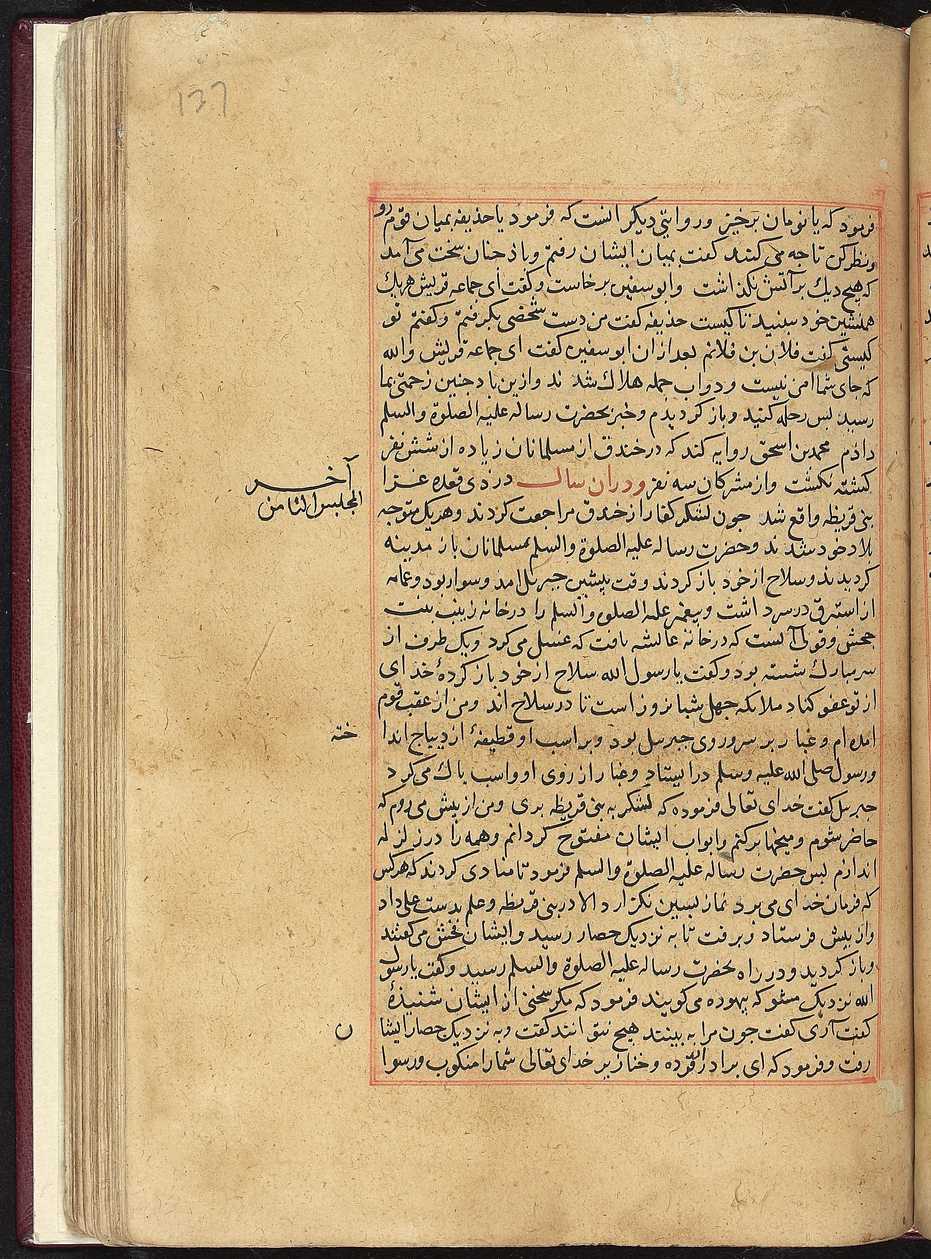 137
فرمود که یا نومان برخیز و روایتی دیکر انست که فرمود یا حذیفه بمیان قوم رو
ونظر کن تا جه می کنند کفت بمیان ایشان رفتم و باد جنان سخت می آمد
که هیچ دیك بر آتش نکذاشت وابوسفین برخاست وکفت ای جماعه قریش هریك
همنشین خود ببینید تا کیست حذیفه کفت من دست شخصی بکرفتم وکفتم تو
کیستی کفت فلان بن فلانم بعد ازان ابوسفین کفت ای جماعه قریش والله
که جای شما امن نیست ودواب جمله هلاك شدند وازین باد جنین زحمتی بما
رسید بس رحله کنید وباز کردیدم وخبر بحضرت رساله علیه الصلوة والسلم
دادم محمد بن اسحق روایه کند که در خندق از مسلمانان زیاده از شش نفر
کشته نکشت واز مشرکان سه نفر ودران سال در ذی قعده غزا
آخر
المجلس الثامن
بنی قریظه واقع شد جون لشکر کفار از خندق مراجعت کردند وهریك متوجه
بلاد خود شدند وحضرت رساله علیه الصلوة والسلم بمسلمانان باز مدینه
کردیدند وسلاح از خود باز کردند وقت پیشین جبریل امد وسوار بود وعمامه
از استبرق در سر داشت وپیغمبر علیه الصلوه والسلم را در خانه زینب بنت
جحش وقولی آنست که در خانه عایشه یافت که غسل می کرد ویك طرف از
سر مبارك شسته بود وکفت یا رسول الله سلاح از خود باز کردهٔ خدای
از تو عفو کناد ملایکه جهل شبانروز است تا در سلاح اند ومن از عقب قوم
امده ام وغبار بر سر وروی جبریل بود وبر اسب او قطیفهٔ از دیباج اندا
خته
ورسول صلی الله علیه وسلم در ایستاد وغبار از روی او واسب باك می کرد
جبریل کفت خدای تعالی فرموده که لشکر به بنی قریظه بری ومن از پیش می روم که
حاضر شوم ومیخها برکنم وابواب ایشان مفتوح کردانم وهمه را در زلزله
اندازم بس حضرت رساله علیه الصلوة والسلم فرمود تا منادی کردند که هرکس
که فرمان خدای می برد نماز بسین نکزارد الا در بنی قریظه وعلم بدست علی داد
واز پیش فرستاد وبرفت تا به نزدیك حصار رسید وایشان فحش می کفتند
وباز کردید ودر راه بحضرت رساله علیه الصلوة والسلم رسید وکفت یا رسول
الله نزدیك مشو که بیهوده می کویند فرمود که مکر سخنی از ایشان شنیدهٔ
کفت آری کفت جون مرا به بینند هیچ نتوانند کفت وبه نزدیك حصار ایشا
ن
رفت وفرمود که ای برادر القرده وخنازیر خدای تعالی شما را منکوب ورسوا